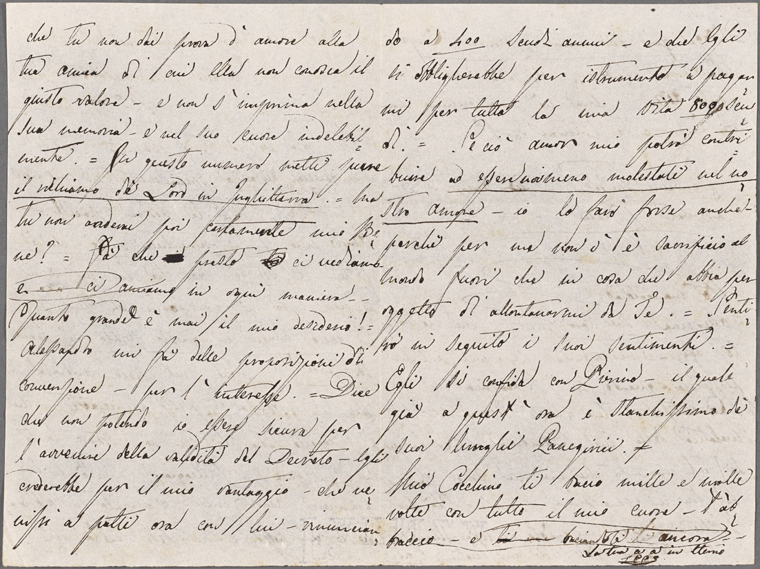 che tu non dai prova d'amore alla
tua amica di cui ella non conosca il
giusto valore - e non s'imprima nella
sua memoria - e nel suo cuore indelebil-
mente. = In questo numero metti pure
il richiamo de' Lord in Inghilterra. = ma
tu non anderai poi certamente mio Be-
ne? = Fà che presto ci vediamo
e ci amiamo in ogni maniera -
Quanto grande è mai il mio desiderio! =
Alessandro mi fà delle proposizioni di
convenzione - per l'interesse. = Dice
che non potendo io essere sicura per
l'avvenire della validità del Decreto - Egli
crederebbe per il mio vantaggio - che ve-
nissi a patti ora con lui - rinuncian-
do a 400 Scudi annui - e che Egli
si obbligherebbe per istrumento a pagar-
mi per tutta la mia vita 800 Scu-
di. = Se ciò amor mio potrà contri-
buire ad essere meno molestati nel no-
stro amore - io lo farò forse anche -
perché per me non v'è sacrificio al
mondo fuori che in cosa che abbia per
oggetto di allontanarmi da Te. = Senti-
rò in seguito i suoi sentimenti. =
Egli si confida con Pierino - il quale
già a quest'ora è stanchissimo de'
suoi lunghi Panegirici. =
Mio Cocchino ti bacio mille e mille
volte con tutto il mio cuore - t'ab-
braccio - e ancora -
La tua a. a. in eterno